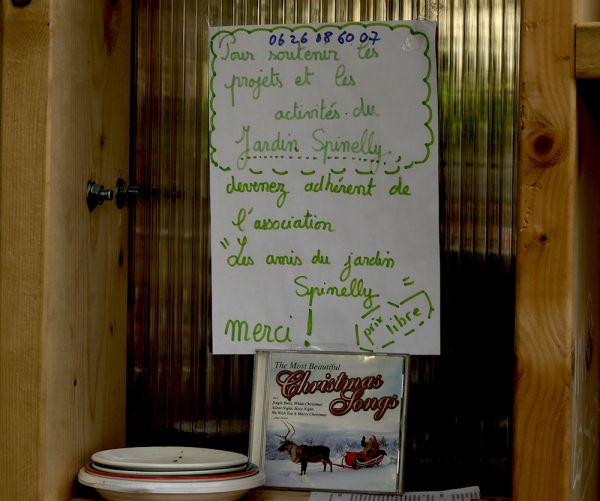 06 26 08 60 07
Pour soutenir les
projets et les
activités du
Jardin Spinelly,
devenez adhérent de
l'association
"Les amis du jardin
Spinelly"
Merci !
prix
libre
The Most Beautiful
Christmas
Songs
Jingle Bells, White Christmas
Silent Night, Holy Night
We Wish You A Merry Christmas